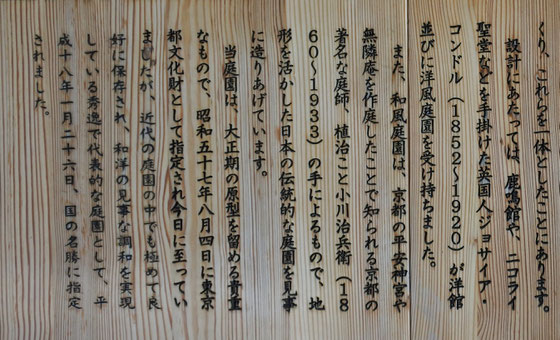 くり、これらを一体としたことにあります。
設計にあたっては、鹿鳴館や、ニコライ
聖堂などを手掛けた英国人ジョサイア・
コンドル（1852〜1920）が洋館
並びに洋風庭園を受け持ちました。
また、和風庭園は、京都の平安神宮や
無隣庵を作庭したことで知られる京都の
著名な庭師、植治こと小川治兵衛（18
60〜1933）の手によるもので、地
形を活かした日本の伝統的な庭園を見事
に造りあげています。
当庭園は、大正期の原型を留める貴重
なもので、昭和五十七年八月四日に東京
都文化財として指定され今日に至ってい
ましたが、近代の庭園の中でも極めて良
好に保存され、和洋の見事な調和を実現
している秀逸で代表的な庭園として、平
成十八年一月二十六日、国の名勝に指定
されました。